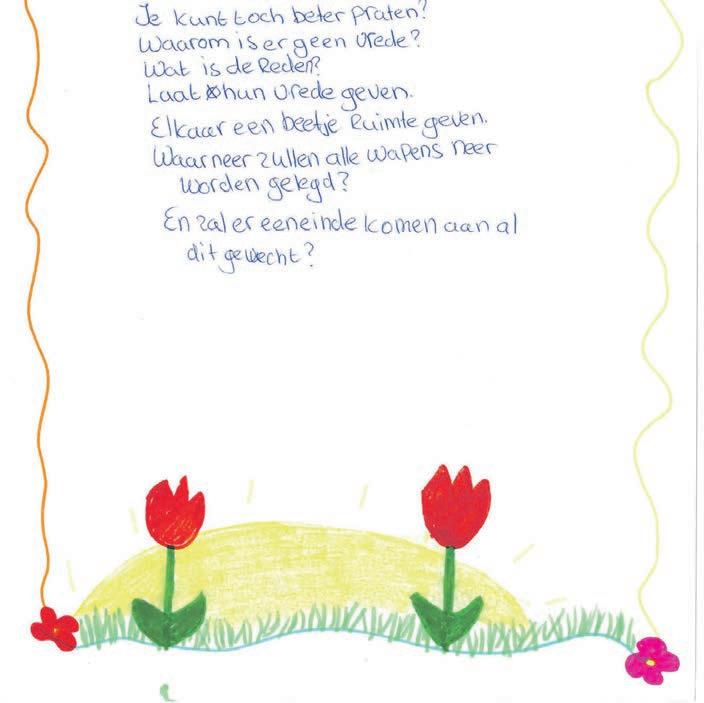 Je kunt toch beter praten?
Waarom is er geen vrede?
Wat is de Reden?
Laat hun vrede geven.
Elkaar een beetje Ruimte geven.
Waarneer zullen alle wapens neer
worden gelegd?
En zal er eeneinde komen aan al
dit gevecht?